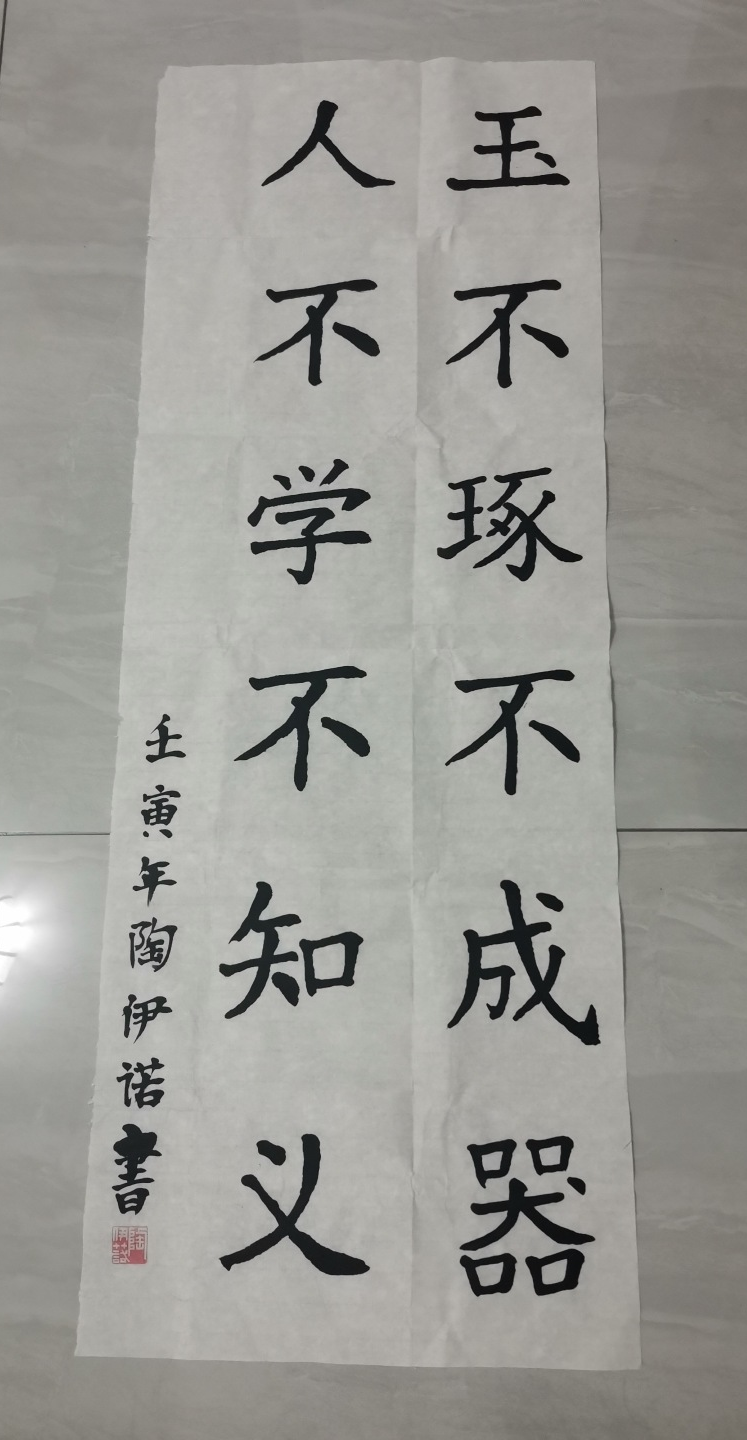 玉不琢不成器
人不学不知义
壬寅年陶伊诺書
陶伊诺